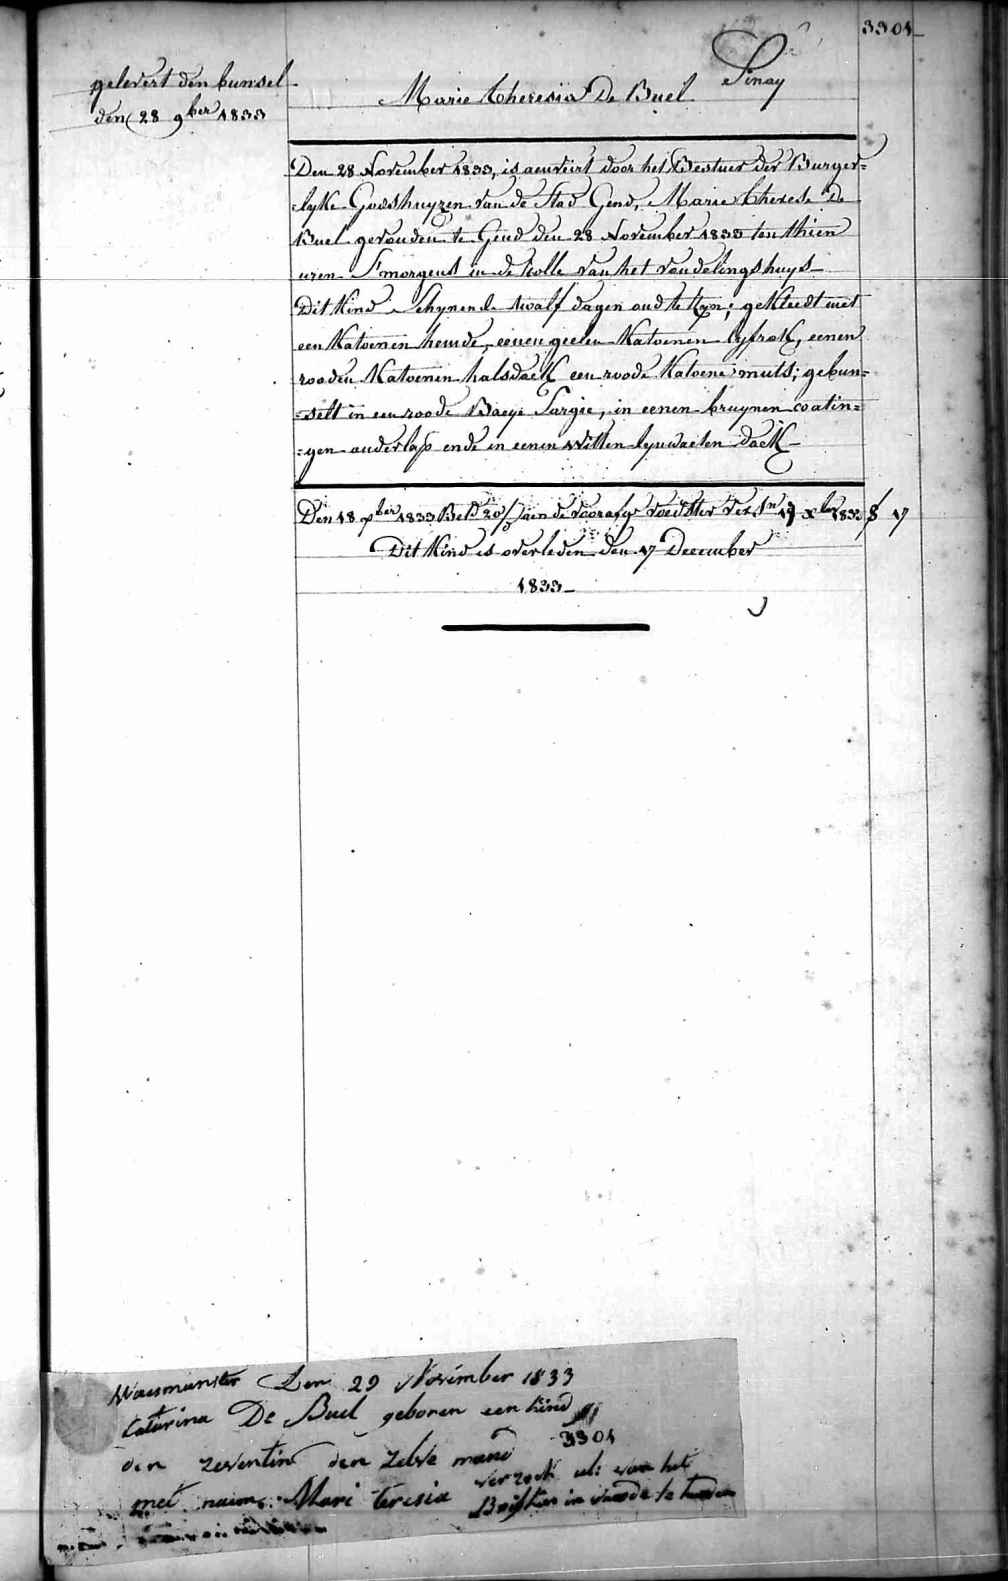 3304
gelevert den bunsel
den 28 9ber 1833
Sinay
Marie Theresia De Buel
Den 28 November 1833, is aenveirt door het Bestuer der Burger=
=lyke Godshuyzen van de Stad Gend, Marie Therese De
Buel gevonden te Gend den 28 November 1833 ten thien
uren S'morgens in de rolle van het vondelingshuys
Dit Kind schynende twalf dagen oud te zyn; gekleedt met
een Katoenen hemde, eenen geelen Katoenen lyfrok, eenen
rooden Katoenen halsdoeK een roode Katoene muts; gebun=
=selt in een roode Baeye Sargie, in eenen bruynen coatin=
=gen onderlap ende in eenen witten lynwaeten doeK
Den 18 xber 1833 Bet. 20 aen de voedster 17 xber 1833 $ 17
Dit Kind is overleden den 17 December
1833
Waesmunster Den 29 November 1833
Catarina De Buel geboren een kind
den zeventin den zelve mand 3304
met naeme Mari Teresia verzoek het
in te